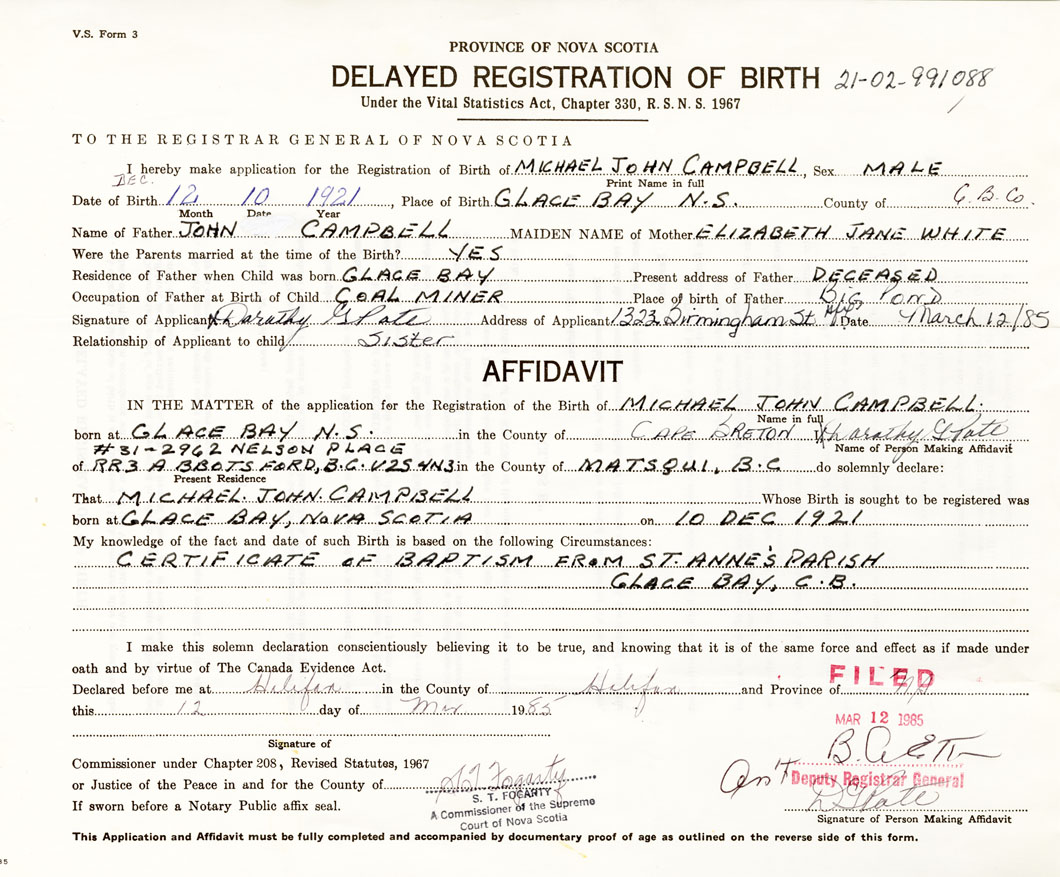 V.S. Form 3
PROVINCE OF NOVA SCOTIA
DELAYED REGISTRATION OF BIRTH 21-02-991088
Under the Vital Statistics Act, Chapter 330, R. S. N. S. 1967
TO THE REGISTRAR GENERAL OF NOVA SCOTIA
I hereby make application for the Registration of Birth of MICHAEL JOHN CAMPBELL, Sex MALE
DEC. Print Name in full
Date of Birth 12 10 1921, Place of Birth GLACE BAY N.S. County of C.B. Co.
Month Date Year
Name of Father JOHN CAMPBELL MAIDEN NAME of Mother ELIZABETH JANE WHITE
Were the Parents married at the time of the Birth? YES
Residence of Father when Child was born GLACE BAY Present address of Father DECEASED
Occupation of Father at Birth of Child COAL MINER Place of birth of Father BIG POND
Signature of Applicant Darathy G Pate Address of Applicant 1323 Birmingham St Hfx Date March 12/85
Relationship of Applicant to child Sister
AFFIDAVIT
IN THE MATTER of the application for the Registration of the Birth of MICHAEL JOHN CAMPBELL.
Name in full
born at GLACE BAY N.S. in the County of CAPE BRETON Darathy G Pate
#31-2962 NELSON PLACE Name of Person Making Affidavit
of RR3 ABBOTSFORD, B.C. V2S 4N3 in the County of MATSQUI, B.C do solemnly declare:
Present Residence
That MICHAEL JOHN CAMPBELL Whose Birth is sought to be registered was
born at GLACE BAY, NOVA SCOTIA on 10 DEC 1921
My knowledge of the fact and date of such Birth is based on the following Circumstances:
CERTIFICATE OF BAPTISM FROM ST. ANNE'S PARISH
GLACE BAY, C.B.
I make this solemn declaration conscientiously believing it to be true, and knowing that it is of the same force and effect as if made under
oath and by virtue of The Canada Evidence Act.
FILED
Declared before me at Halifax in the County of Halifax and Province of NS
this 12 day of Mar 1985
MAR 12 1985
Signature of
Commissioner under Chapter 208, Revised Statutes, 1967
or Justice of the Peace in and for the County of S T Fogarty
Deputy Registrar General
S. T. FOGARTY
If sworn before a Notary Public affix seal.
A Commissioner of the Supreme
Court of Nova Scotia
D G Pate
Signature of Person Making Affidavit
This Application and Affidavit must be fully completed and accompanied by documentary proof of age as outlined on the reverse side of this form.